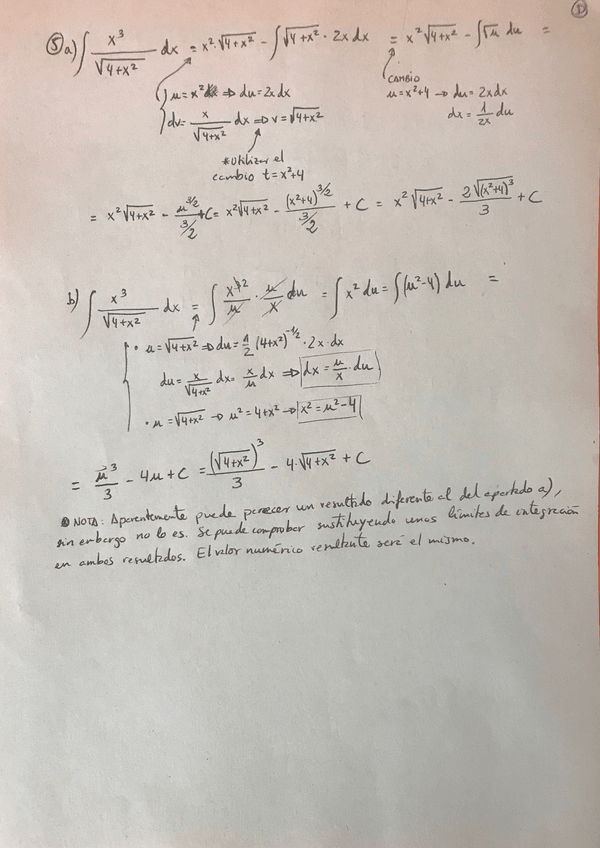 D
⑤ a) ∫ x³/√(4+x²) dx = x²·√(4+x²) − ∫ √(4+x²) · 2x dx = x²√(4+x²) − ∫ √u du =
u = x² ⇒ du = 2x dx
dv = x/√(4+x²) dx ⇒ v = √(4+x²)
* Utilizar el
cambio t = x²+4
CAMBIO
u = x²+4 → du = 2x dx
dx = 1/2x du
= x²√(4+x²) − u^(3/2)/(3/2) + C = x²√(4+x²) − (x²+4)^(3/2)/(3/2) + C = x²√(4+x²) − 2√((x²+4)³)/3 + C
b) ∫ x³/√(4+x²) dx = ∫ x³²/u · u/x du = ∫ x² du = ∫ (u²−4) du =
• u = √(4+x²) ⇒ du = 1/2 (4+x²)^(-1/2) · 2x · dx
du = x/√(4+x²) dx = x/u dx ⇒ dx = u/x · du
• u = √(4+x²) → u² = 4+x² → x² = u²−4
= u³/3 − 4u + C = (√(4+x²))³/3 − 4·√(4+x²) + C
NOTA: Aparentemente puede parecer un resultido diferente al del apartado a),
sin embargo no lo es. Se puede comprobar sustituyendo unos límites de integración
en ambos resultados. El valor numérico resultante será el mismo.